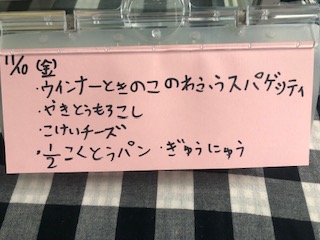 11/10 (金)
・ウインナーときのこのわふうスパゲッティ
・やきとうもろこし
・こけいチーズ
・1/2こくとうパン・ぎゅうにゅう